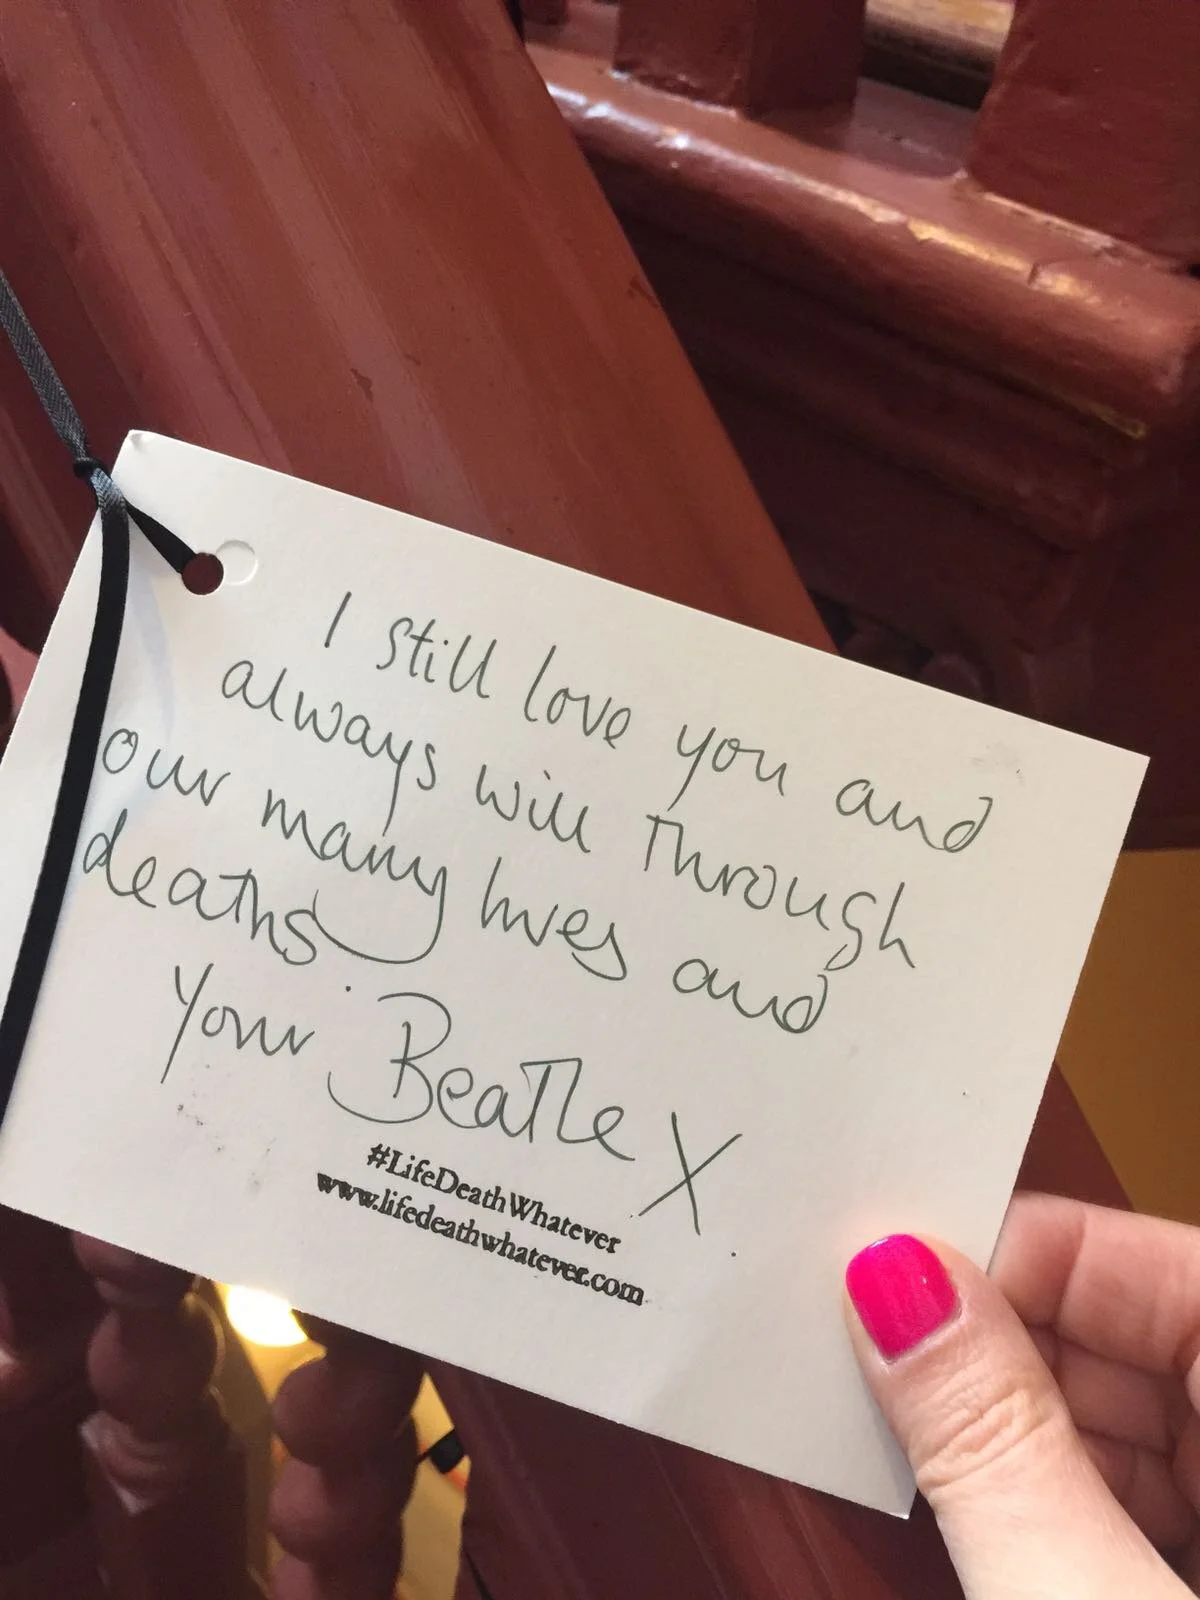 I still love you and
always will through
our many lives and
deaths.
Your Beatle X
#LifeDeathWhatever
www.lifedeathwhatever.com